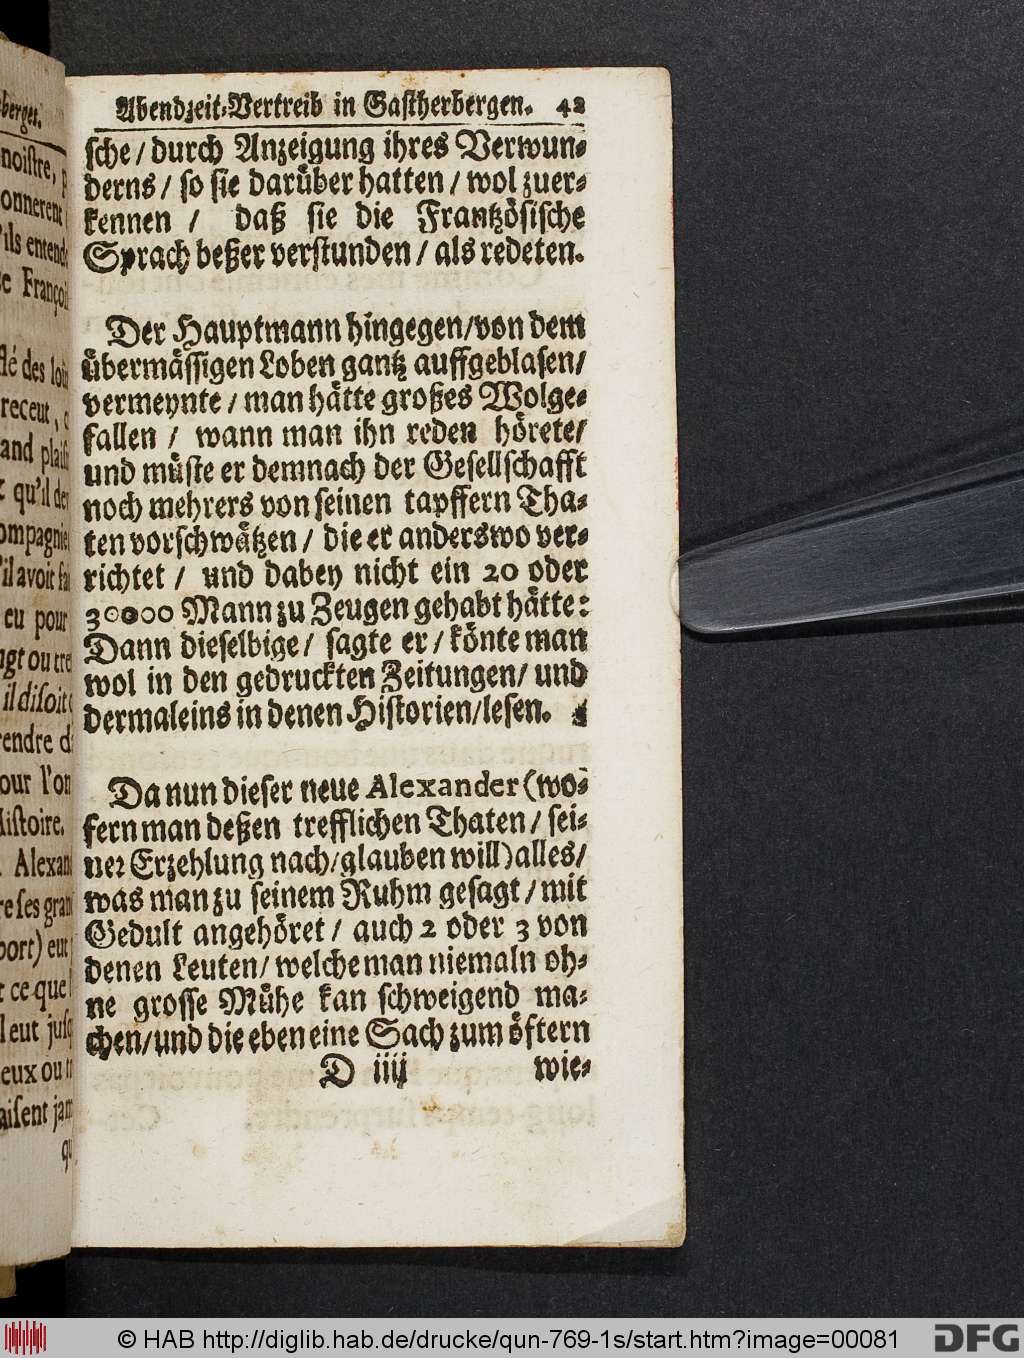 berger.
noiſtre, p
onnerent
'ils entend
e Françoi
flé des loü
receut, c
and plaiſi
qu'il de
ompagnie
'il avoit fa
eu pour
ngt ou tre
il diſoit
rendre d
our l'on
Hiſtoire.
Alexan
re ſes gran
port) eut
t ce que
l eut juſq
eux ou
aiſent jam
qu
Abendzeit-Vertreib in Gaſtherbergen. 42
ſche / durch Anzeigung ihres Verwun-
derns / ſo ſie darüber hatten / wol zuer-
kennen / daß ſie die Frantzöſiſche
Sprach beßer verſtunden / als redeten.
Der Hauptmann hingegen / von dem
übermäſſigen Loben gantz auffgeblaſen /
vermeynte / man hätte großes Wolge-
fallen / wann man ihn reden hörete /
und müſte er demnach der Geſellſchafft
noch mehrers von ſeinen tapffern Tha-
ten vorſchwätzen / die er anderswo ver-
richtet / und dabey nicht ein 20 oder
30000 Mann zu Zeugen gehabt hätte:
Dann dieſelbige / ſagte er / könte man
wol in den gedruckten Zeitungen / und
dermaleins in denen Hiſtorien / leſen.
Da nun dieſer neue Alexander (wo-
fern man deßen trefflichen Thaten / ſei-
ner Erzehlung nach / glauben will) alles /
was man zu ſeinem Ruhm geſagt / mit
Gedult angehöret / auch 2 oder 3 von
denen Leuten / welche man niemaln oh-
ne groſſe Mühe kan ſchweigend ma-
chen / und die eben eine Sach zum öftern
D iiij wie-
© HAB http://diglib.hab.de/drucke/qun-769-1s/start.htm?image=00081
DFG